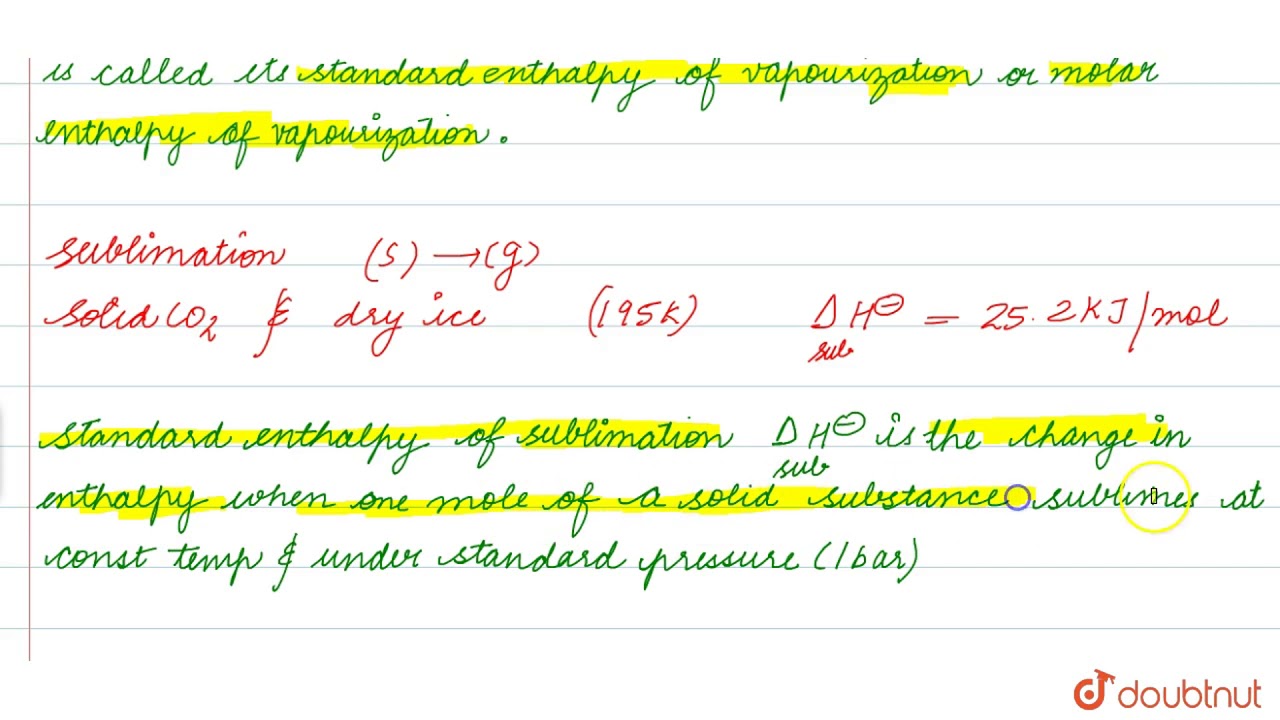 is called its standard enthalpy of vapourization or molar
enthalpy of vapourization.
sublimation (s) → (g)
solid CO2 & dry ice (195K) ΔsubH⊖ = 25.2 KJ/mol
standard enthalpy of sublimation ΔsubH⊖ is the change in
enthalpy when one mole of a solid substance sublimes at
const temp & under standard pressure (1bar)
doubtnut